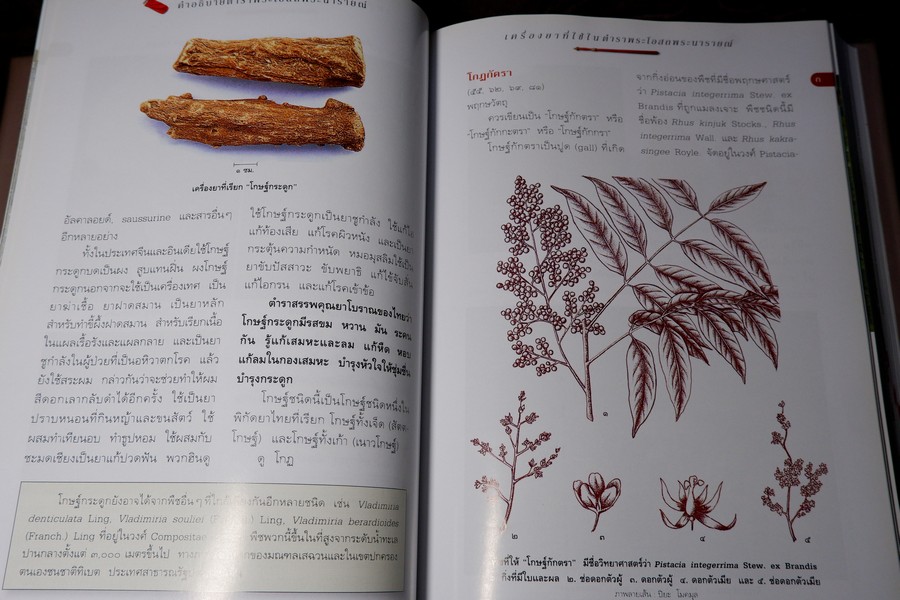 คำอธิบายตำราพระโอสถพระนารายณ์
๑ ซม.
เครื่องยาที่เรียก "โกษฐ์กระดูก"
อัลคาลอยด์, saussurine และสารอื่นๆ
อีกหลายอย่าง
ทั้งในประเทศจีนและอินเดียใช้โกษฐ์
กระดูกบดเป็นผง สูบแทนฝิ่น ผงโกษฐ์
กระดูกนอกจากจะใช้เป็นเครื่องเทศ เป็น
ยาฆ่าเชื้อ ยาฝาดสมาน เป็นยาหลัก
สำหรับทำขี้ผึ้งฝาดสมาน สำหรับเรียกเนื้อ
ในแผลเรื้อรังและแผลกลาย และเป็นยา
ชูกำลังในผู้ป่วยที่เป็นอหิวาตกโรค แล้ว
ยังใช้สระผม กล่าวกันว่าจะช่วยทำให้ผม
สีดอกเลากลับดำได้อีกครั้ง ใช้เป็นยา
ปราบหนอนที่กินหญ้าและขนสัตว์ ใช้
ผสมทำเทียนอบ ทำธูปหอม ใช้ผสมกับ
ชะมดเชียงเป็นยาแก้ปวดฟัน พวกฮินดู
ใช้โกษฐ์กระดูกเป็นยาชูกำลัง ใช้แก้ไอ
แก้ท้องเสีย แก้โรคผิวหนัง และเป็นยา
กระตุ้นความกำหนัด หมอมุสลิมใช้เป็น
ยาขับปัสสาวะ ขับพยาธิ แก้ไข้จับสั่น
แก้ไอกรน และแก้โรคเข้าข้อ
ตำราสรรพคุณยาโบราณของไทยว่า
โกษฐ์กระดูกมีรสขม หวาน มัน ระคน
กัน รู้แก้เสมหะและลม แก้หืด หอบ
แก้ลมในกองเสมหะ บำรุงหัวใจให้ชุ่มชื่น
บำรุงกระดูก
โกษฐ์ชนิดนี้เป็นโกษฐ์ชนิดหนึ่งใน
พิกัดยาไทยที่เรียก โกษฐ์ทั้งเจ็ด (สัตต-
โกษฐ์) และโกษฐ์ทั้งเก้า (เนาวโกษฐ์)
ดู โกฏ
โกษฐ์กระดูกยังอาจได้จากพืชอื่นๆ ที่ใกล้ กันอีกหลายชนิด เช่น Vladimiria
denticulata Ling, Vladimiria souliei Ling, Vladimiria berardioides
(Franch.) Ling ที่อยู่ในวงศ์ Compositae พืชพวกนี้ขึ้นในที่สูงจากระดับน้ำทะเล
ปานกลางตั้งแต่ ๓,๐๐๐ เมตรขึ้นไป ของมณฑลเสฉวนและในเขตปกครอง
ตนเองชนชาติทิเบต ประเทศสาธารณรัฐ
เครื่องยาที่ใช้ในตำราพระโอสถพระนารายณ์
ก
โกฏกัตรา
(๕๕, ๖๒, ๖๙, ๘๑)
พฤกษวัตถุ
ควรเขียนเป็น "โกษฐ์กักตรา" หรือ
"โกษฐ์กักกะตรา" หรือ "โกษฐ์กักกรา"
โกษฐ์กักตราเป็นปูด (gall) ที่เกิด
จากกิ่งอ่อนของพืชที่มีชื่อพฤกษศาสตร์
ว่า Pistacia integerrima Stew. ex
Brandis ที่ถูกแมลงเจาะ พืชชนิดนี้มี
ชื่อพ้อง Rhus kinjuk Stocks, Rhus
integerrima Wall. และ Rhus kakra-
singee Royle. จัดอยู่ในวงศ์ Pistacia-
๑
๒
๓
๔
๕
ที่ให้ "โกษฐ์กักตรา" มีชื่อวิทยาศาสตร์ว่า Pistacia integerrima Stew. ex Brandis
กิ่งที่มีใบและผล ๒. ช่อดอกตัวผู้ ๓. ดอกตัวผู้ ๔. ดอกตัวเมีย และ ๕. ช่อดอกตัวเมีย
ภาพลายเส้น : ปิยะ โมคมุล